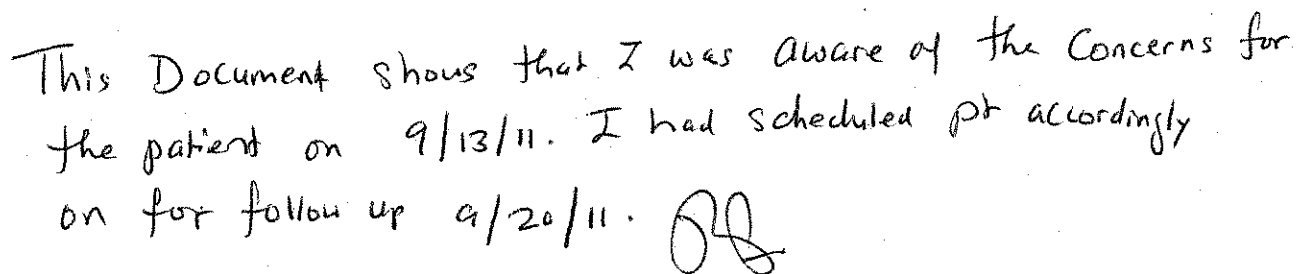 This Document shows that I was aware of the Concerns for
the patient on 9/13/11. I had scheduled pt accordingly
on for follow up 9/20/11.